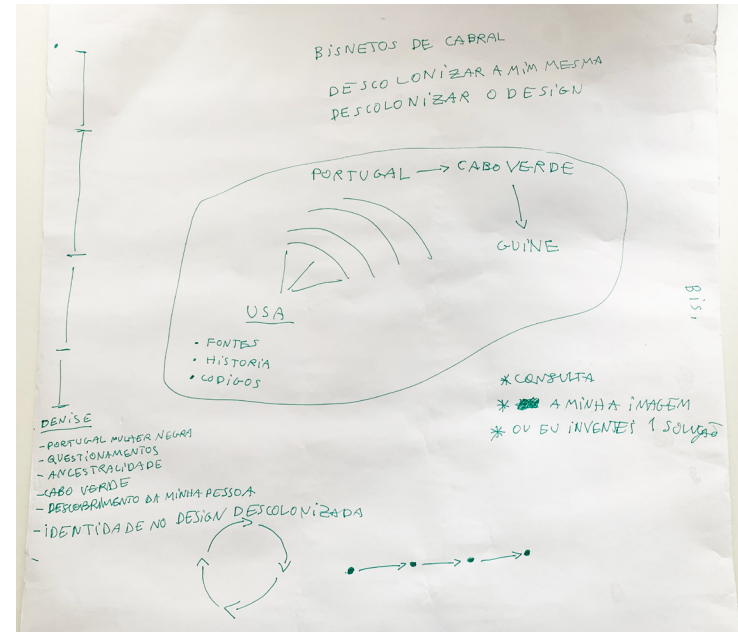 BISNETOS DE CABRAL
DESCOLONIZAR A MIM MESMA
DESCOLONIZAR O DESIGN
PORTUGAL → CABO VERDE
GUINE
USA
• FONTES
• HISTORIA
• CODIGOS
BIS,
* CONSULTA
* A MINHA IMAGEM
* OU EU INVENTEI 1 SOLUÇÃO
DENISE
- PORTUGAL MULHER NEGRA
- QUESTIONAMENTOS
- ANCESTRALIDADE
- CABO VERDE
- DESCOBRIMENTO DA MINHA PESSOA
- IDENTIDADE NO DESIGN DESCOLONIZADA
-